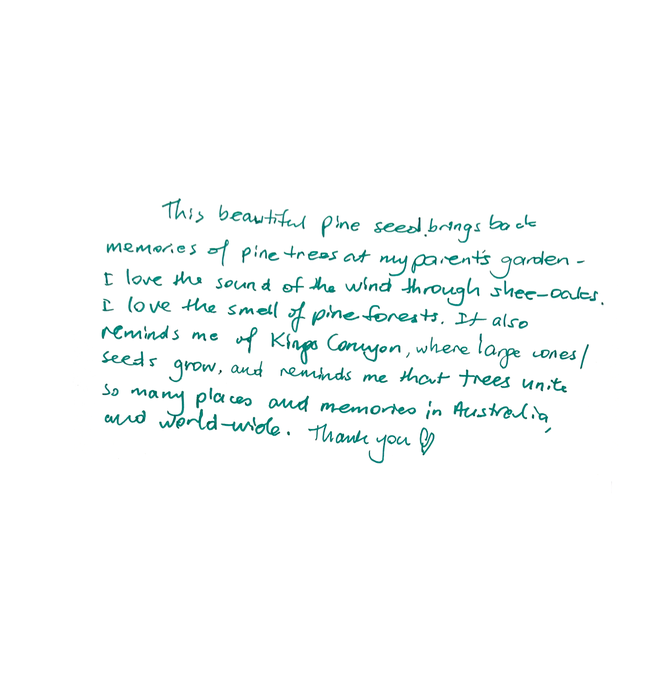 This beautiful pine seed brings back
memories of pine trees at my parent's garden -
I love the sound of the wind through shee-oaks.
I love the smell of pine forests. It also
reminds me of Kings Canyon, where large cones/
seeds grow, and reminds me that trees unite
so many places and memories in Australia,
and world-wide. Thank you ♡